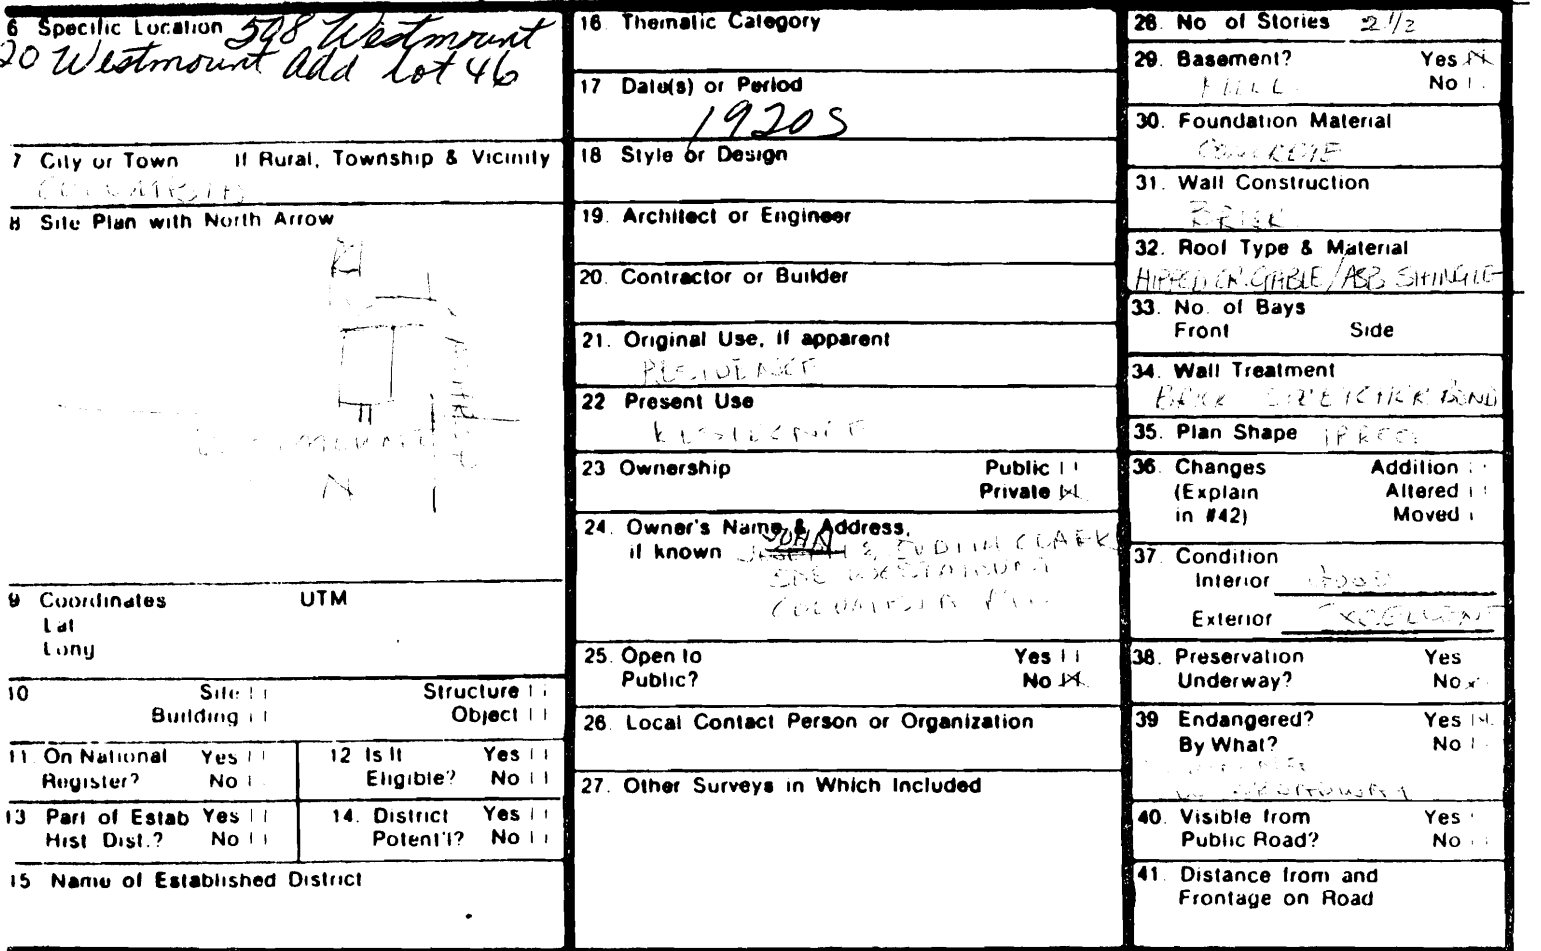 6 Specific Location 508 Westmount
20 Westmount Add Lot 46
7 City or Town If Rural, Township & Vicinity
COLUMBIA
8 Site Plan with North Arrow
N
9 Coordinates UTM
Lat
Long
10 Site
Structure
Building
Object
11. On National Register? Yes No
12 Is It Eligible? Yes No
13 Part of Estab Hist Dist.? Yes No
14. District Potent'l? Yes No
15 Name of Established District
16. Thematic Category
17 Date(s) or Period
1920s
18 Style or Design
19. Architect or Engineer
20. Contractor or Builder
21. Original Use, if apparent
RESIDENCE
22 Present Use
RESIDENCE
23 Ownership Public
Private
24. Owner's Name & Address,
if known JOHN & JUDITH CLARK
WESTMOUNT
COLUMBIA
25. Open to Yes
Public? No
26. Local Contact Person or Organization
27. Other Surveys in Which Included
28. No of Stories 2 1/2
29. Basement? Yes
FULL No
30. Foundation Material
CONCRETE
31. Wall Construction
BRICK
32. Roof Type & Material
HIPPED ON GABLE/ASB SHINGLE
33. No. of Bays
Front Side
34. Wall Treatment
BRICK STRETCHER BOND
35. Plan Shape IRREG
36. Changes Addition
(Explain Altered
in #42) Moved
37. Condition
Interior GOOD
Exterior EXCELLENT
38. Preservation Yes
Underway? No x
39 Endangered? Yes
By What? No
40. Visible from Yes
Public Road? No
41. Distance from and
Frontage on Road